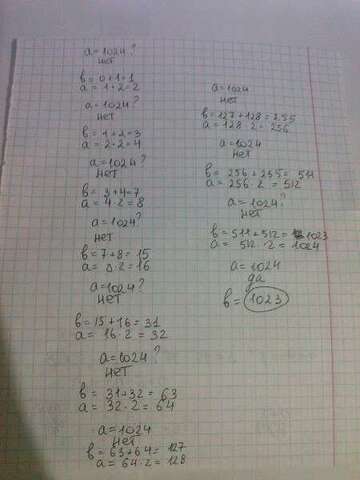 a=1024?
нет
b=0+1=1
a=1+2=2
a=1024?
нет
b=1+2=3
a=2·2=4
a=1024?
нет
b=3+4=7
a=4·2=8
a=1024?
нет
b=7+8=15
a=8·2=16
a=1024?
нет
b=15+16=31
a=16·2=32
a=1024?
нет
b=31+32=63
a=32·2=64
a=1024
нет
b=63+64=127
a=64·2=128
a=1024
нет
b=127+128=255
a=128·2=256
a=1024
нет
b=256+255=511
a=256·2=512
a=1024?
нет
b=511+512=1023
a=512·2=1024
a=1024
да
b=1023